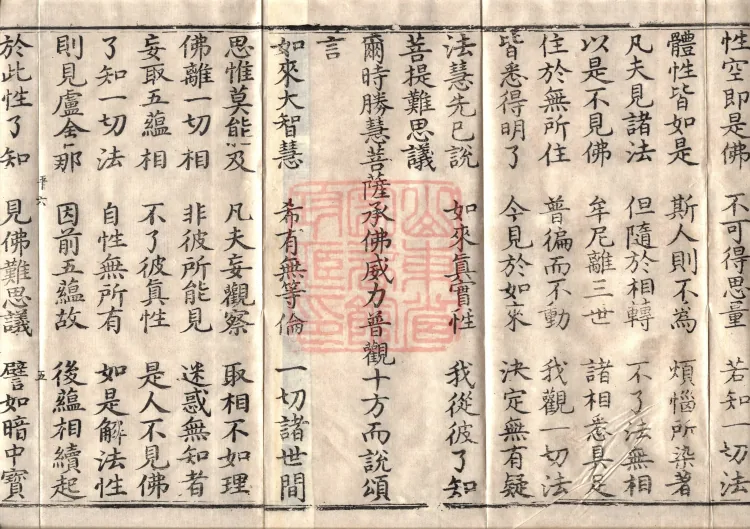 性空即是佛 不可得思量 若知一切法
體性皆如是 斯人則不為 煩惱所染著
凡夫見諸法 但隨於相轉 不了法無相
以是不見佛 牟尼離三世 諸相悉具足
住於無所住 普徧而不動 我觀一切法
皆悉得明了 今見於如來 決定無有疑
法慧先已說 如來眞實性 我從彼了知
菩提難思議
爾時勝慧菩薩承佛威力普觀十方而說頌
言
如來大智慧 希有無等倫 一切諸世間
思惟莫能及 凡夫妄觀察 取相不如理
佛離一切相 非彼所能見 迷惑無知者
妄取五蘊相 不了彼眞性 是人不見佛
了知一切法 自性無所有 如是解法性
則見盧舍那 因前五蘊故 後蘊相續起
平六 五
於此性了知 見佛難思議 譬如暗中寶